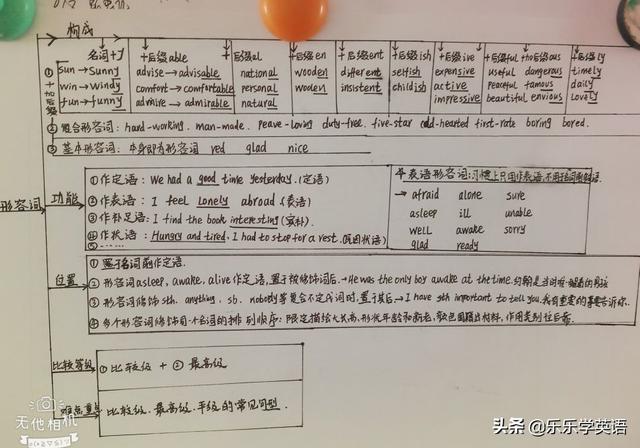 构成
名词+y +后缀able +后缀al +后缀en +后缀ent +后缀ish +后缀ive +后缀ful +hous +后缀ly
① sun→sunny advise→advisable national wooden different selfish expensive useful dangerous timely
+加后缀 win→windy comfort→comfortable personal woolen insistent childish active peaceful famous daily
fun→funny admire→admirable natural impressive beautiful envious lovely
②复合形容词: hard-working. man-made. peave-loving duty-free. five-star cold-hearted first-rate boring bored.
③基本形容词: 本身即为形容词 red glad nice
形容词
功能
①作定语: We had a good time yesterday.(定语)
②作表语: I feel lonely abroad (表语)
③作补足语: I find the book interesting (宾补).
④作状语: Hungry and tired, I had to stop for a rest.(原因状语)
⑤……
表语形容词:习惯上只用作表语,
→ afraid alone sure
asleep ill unable
well awake sorry
glad ready
位置
①置于名词前作定语.
②形容词asleep, awake, alive作定语,置于被修饰词后.→He was the only boy awake at the time.
③形容词修饰sth. anything, sb. nobody等复合不定代词时,置于其后→I have sth important to tell you.我有重要的事要告诉你.
④多个形容词修饰同一个名词的排列顺序:限定描绘大长高,形状年龄和新老,颜色国籍出材料,作用类别往后靠.
比较等级
①比较级 + ②最高级
难点重点
比较级.最高级.平级的常见句型.
无他相机
头条 @乐乐学英语